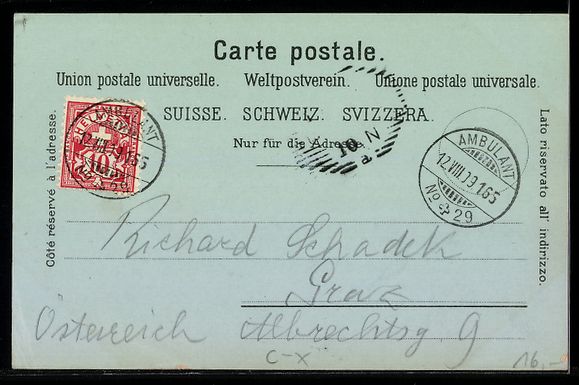 Carte postale.
Union postale universelle. Weltpostverein. Unione postale universale.
SUISSE. SCHWEIZ. SVIZZERA.
Nur für die Adresse
Côté réservé à l'adresse.
Lato riservato all' indirizzo.
HELVETIA
10
AMBULANT
12.VIII.99.165
No 29
10 N
a
AMBULANT
12.VIII.99.165
No 29
Richard Schadek
Graz
Österreich Albrechtsg 9
C-X
16,-